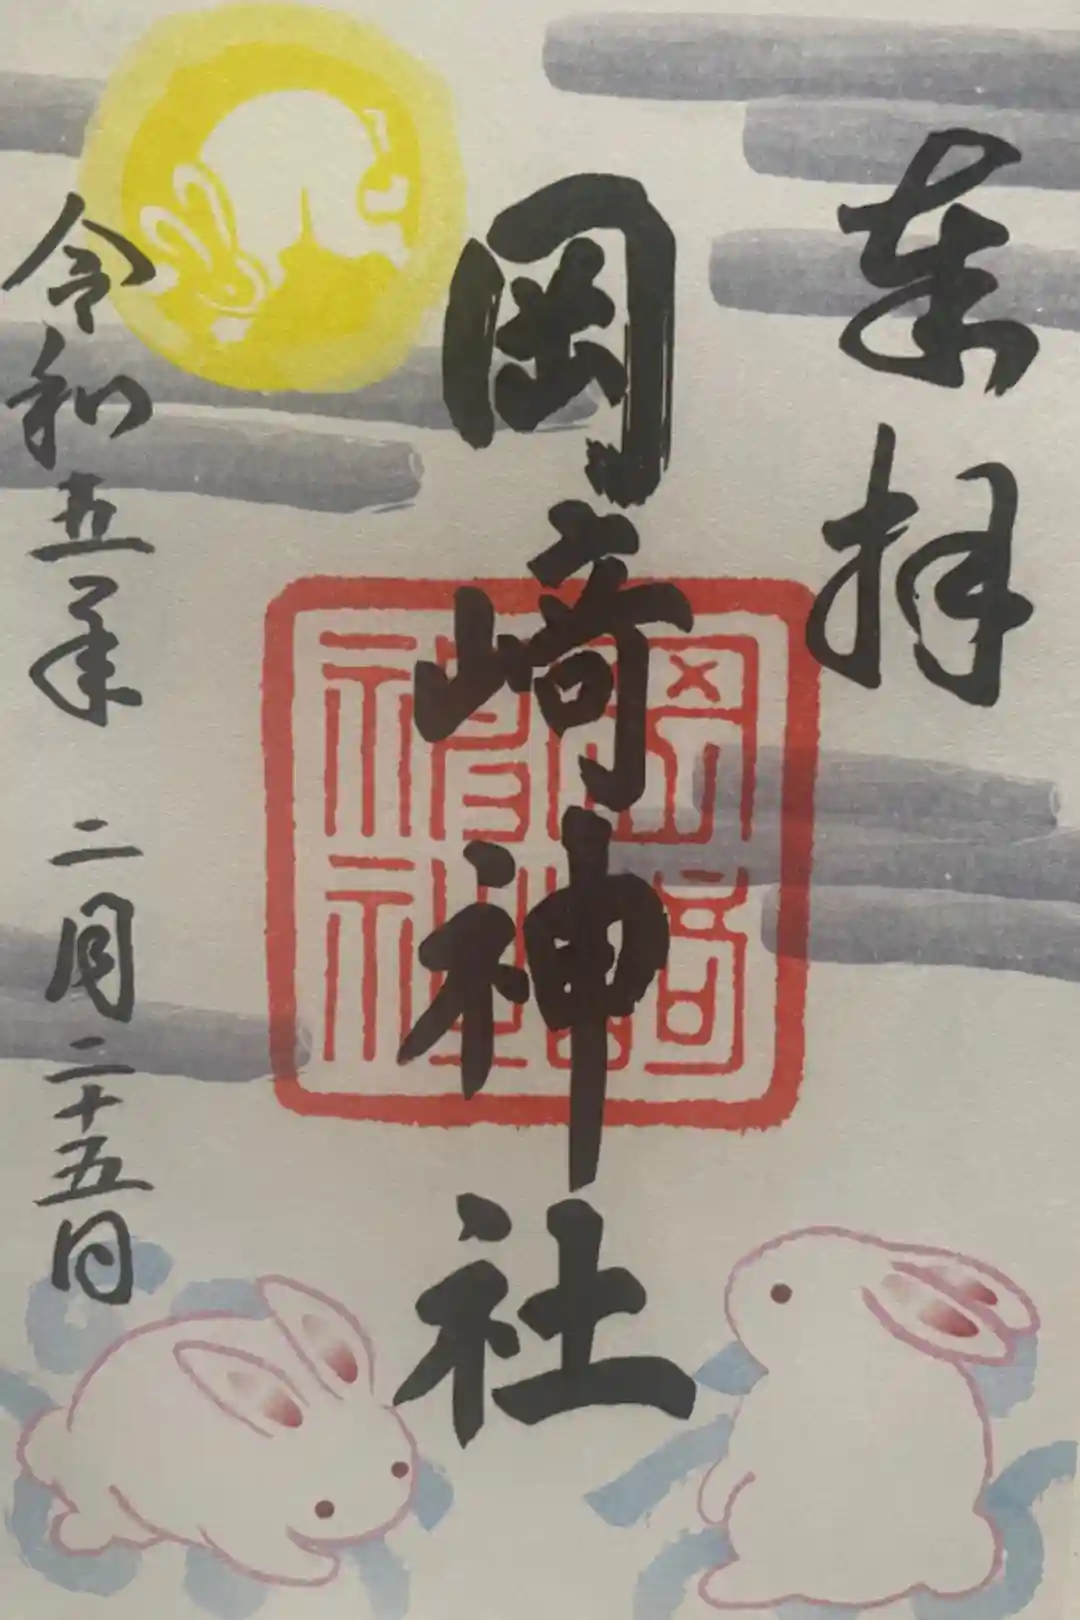 奉拝
岡崎神社
令和五年 二月二十五日
岡崎神社